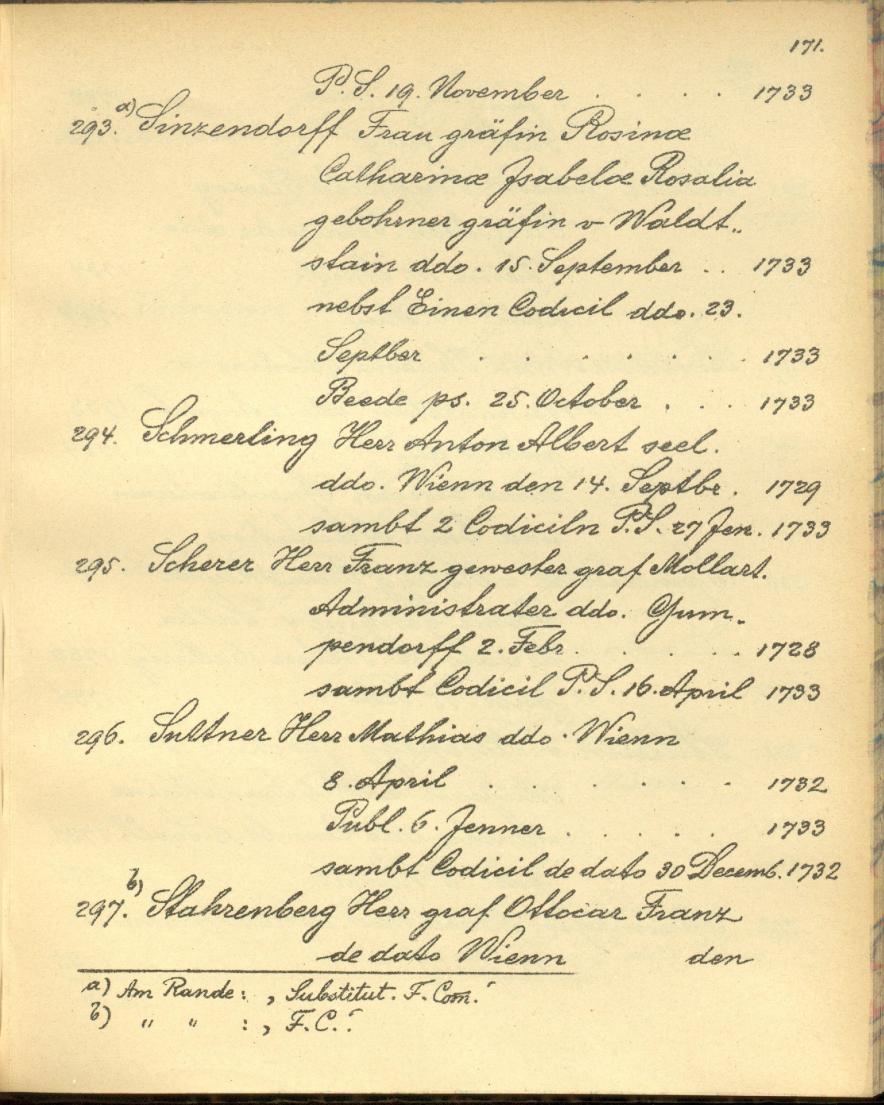 171.
P. S. 19. November . . . . 1733
293. a) Sinzendorff Frau gräfin Rosinæ
Catharinæ Jsabelæ Rosalia
gebohrner gräfin v Waldt„
stain ddo. 15. September . . 1733
nebst Einen Codicil ddo. 23.
Septber . . . . . . . 1733
Beede ps. 25. October . . . 1733
294. Schmerling Herr Anton Albert seel.
ddo. Wienn den 14. Septbr. 1729
sambt 2 Codiciln P.S. 27 Jen. 1733
295. Scherer Herr Franz gewester graf Mollart.
Administrater ddo. Gum„
pendorff 2. Febr. . . . . . 1728
sambt Codicil P. S. 16. April 1733
296. Suttner Herr Mathias ddo. Wienn
8. April . . . . . . 1732
Publ. 6. Jenner . . . . . 1733
sambt Codicil de dato 30 Decemb. 1732
297. b) Stahrenberg Herr graf Ottocar Franz
de dato Wienn den
a) Am Rande: ‚Substitut. F. Com.‘
b) " " : ‚F.C.‘